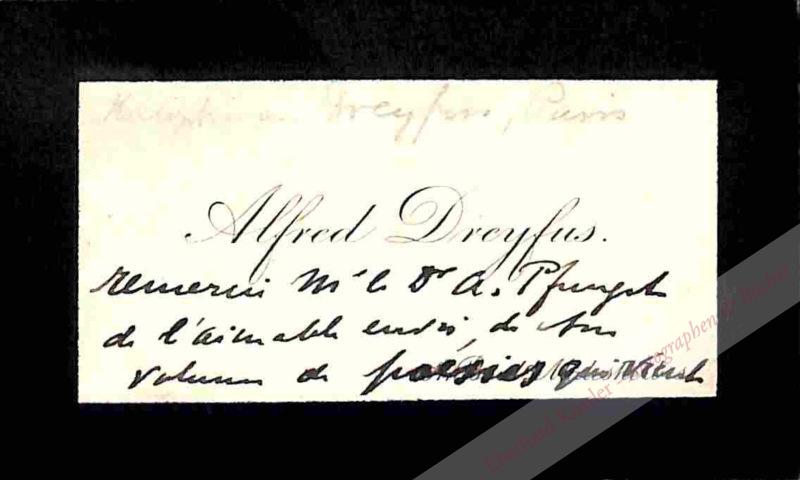 Dreyfus, Paris
Alfred Dreyfus.
remercie Mr le Dr A. Pfungst
de l'aimable envoi, de son
volume de poésies qui vient
Eberhard Köstler Autographen & Bücher